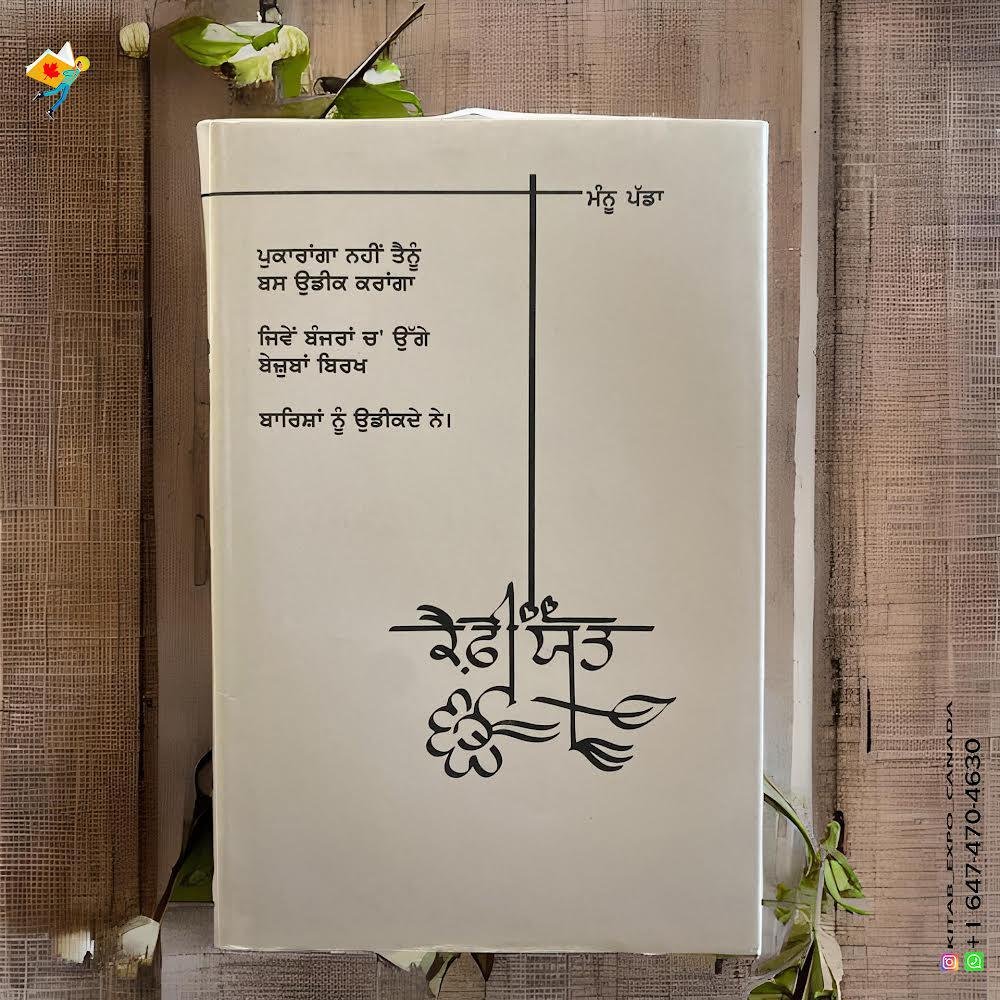 ਮੰਨੂ ਪੱਡਾ
ਪੁਕਾਰਾਂਗਾ ਨਹੀਂ ਤੈਨੂੰ
ਬਸ ਉਡੀਕ ਕਰਾਂਗਾ
ਜਿਵੇਂ ਬੰਜਰਾਂ ਚ' ਉੱਗੇ
ਬੇਜ਼ੁਬਾਂ ਬਿਰਖ
ਬਾਰਿਸ਼ਾਂ ਨੂੰ ਉਡੀਕਦੇ ਨੇ।
ਕੈਫ਼ੀਅੱਤ
KITAB_EXPO_CANADA
+1 647-470-4630